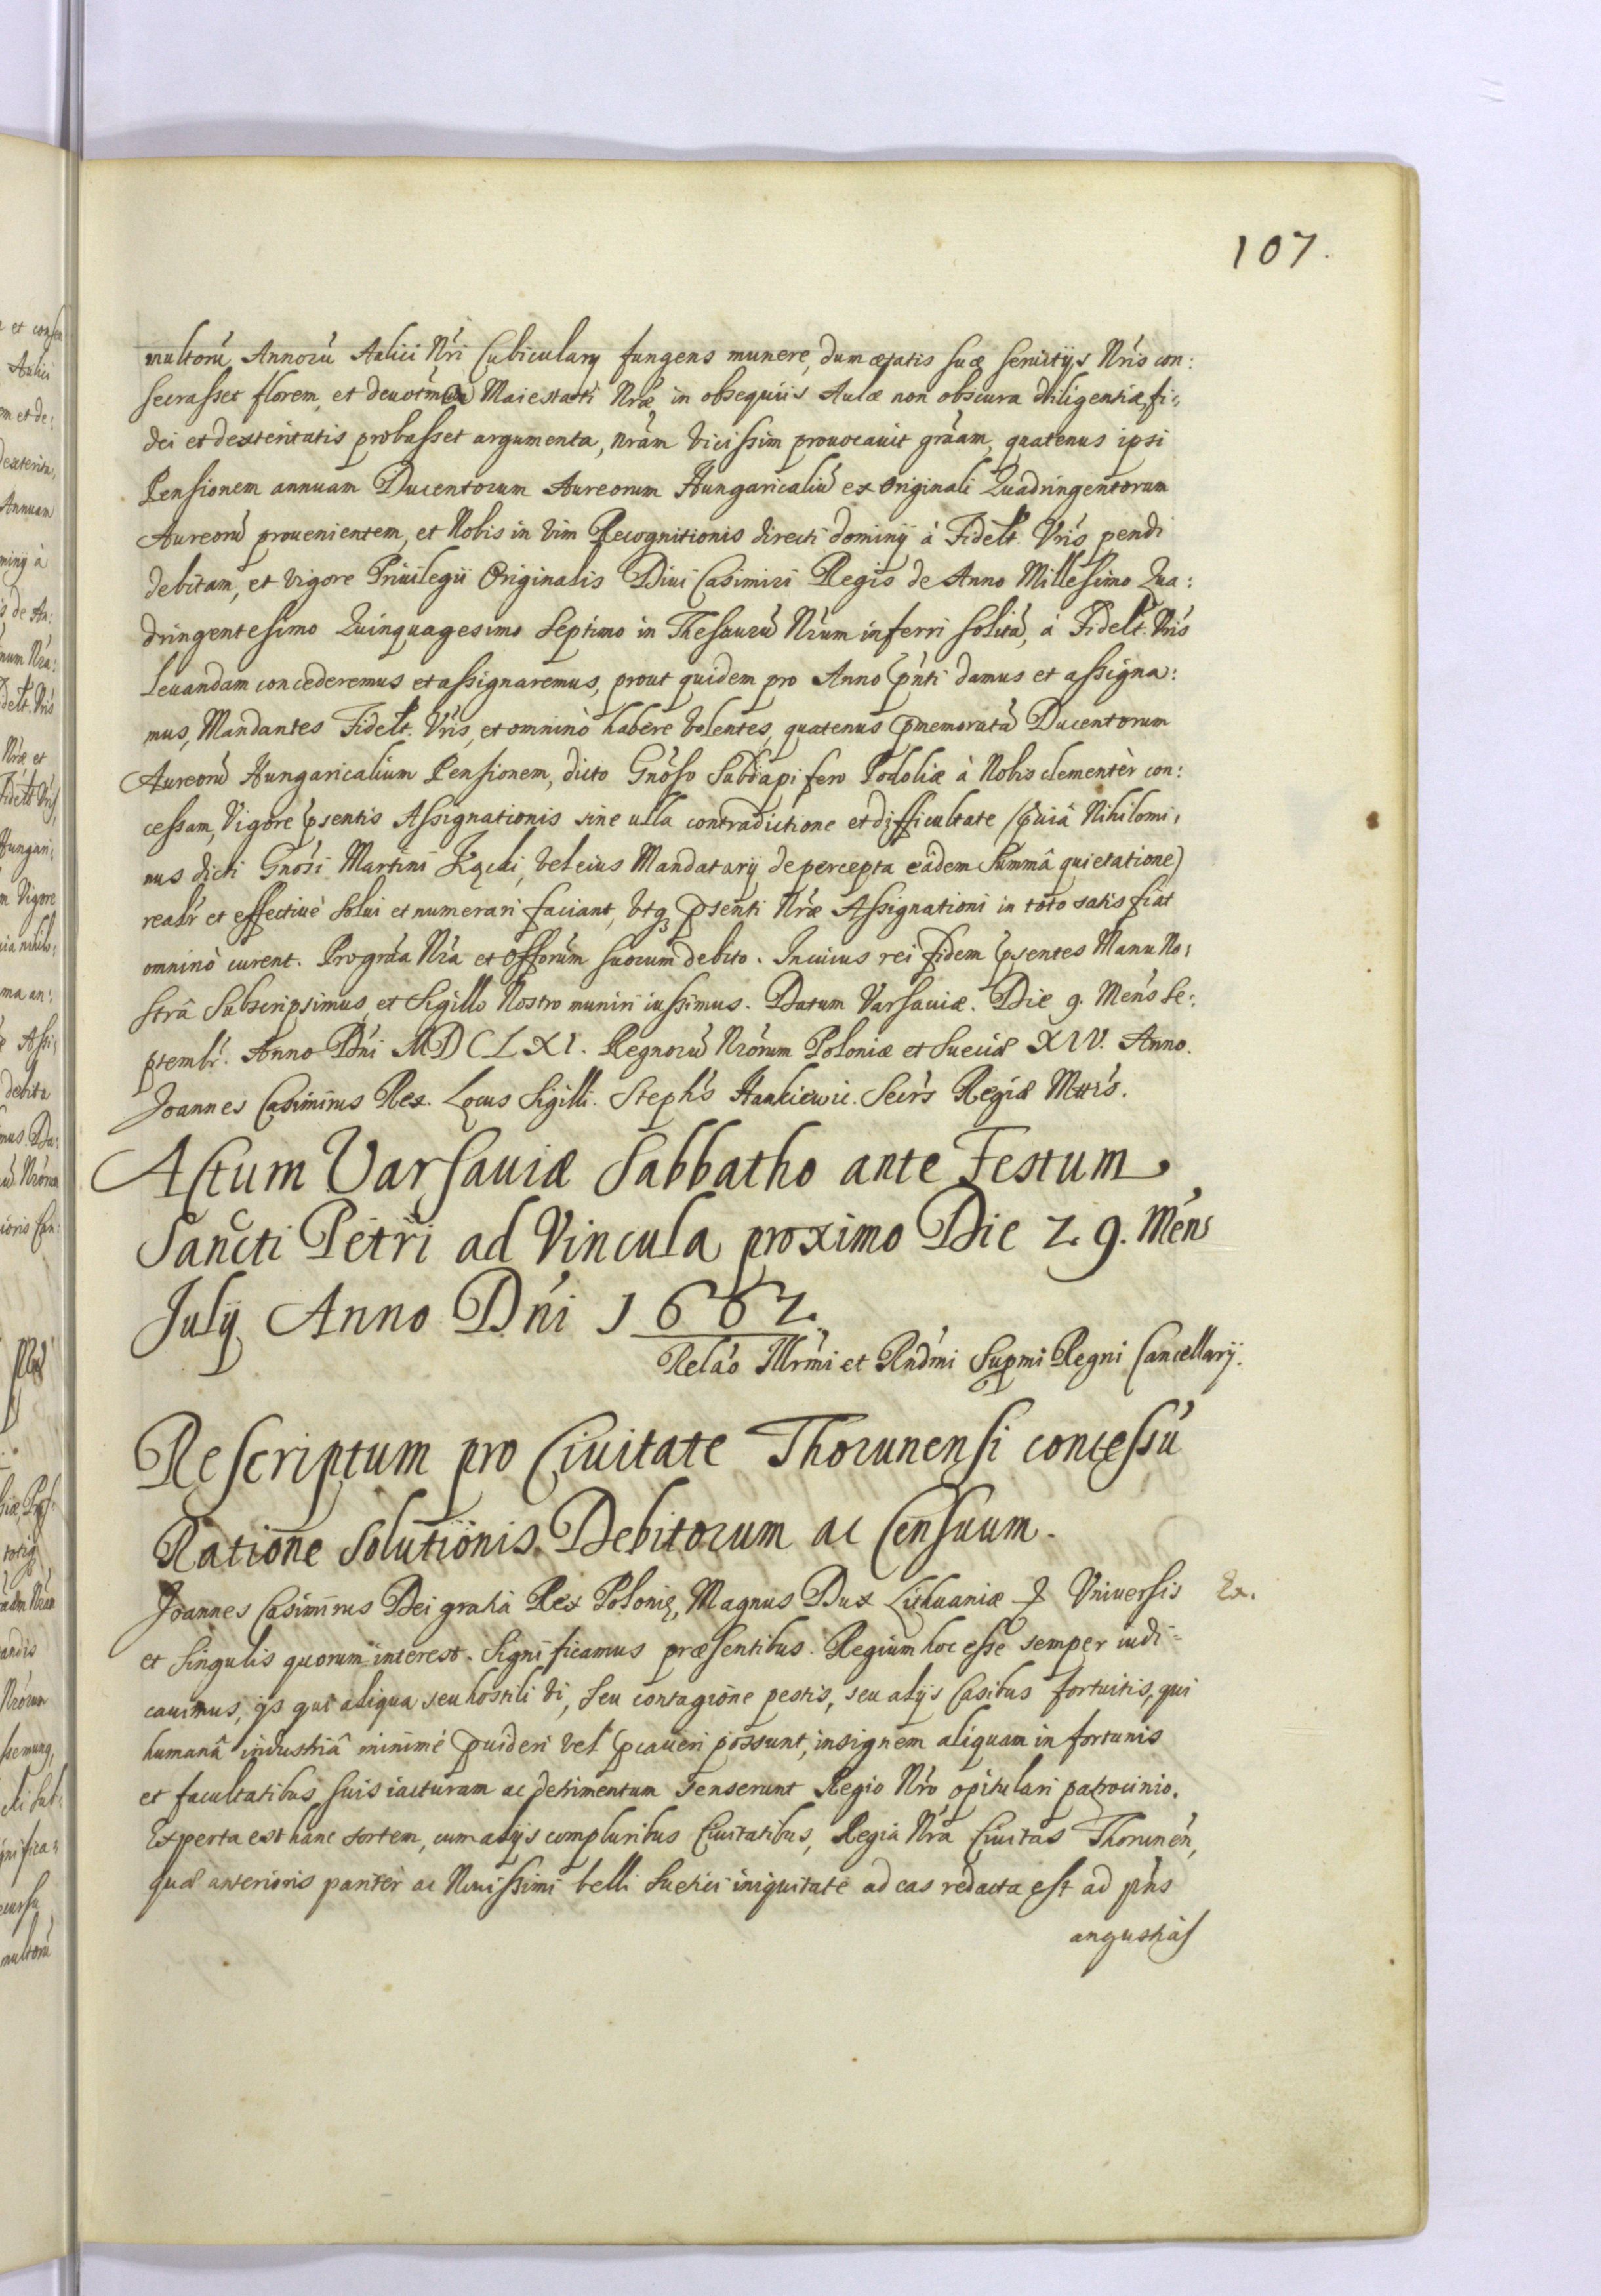 107.
multorũ Annorũ Aulici Nri Cubiculary fungens munere, dum ætatis suæ seruitijs Nris con:
secrasset florem, et Maiestati Nræ in obsequiis Aulæ non obscura diligentiæ, fi:
dei et dexteritatis probasset argumenta, nram vicissim prouocauit gratiam, quatenus ipsi
Pensionem annuam Ducentorum Aureorum Hungaricaliũ ex Originali Quadringentorum
Aureorũ prouenientem, et Nobis in vim Recognitionis directi dominij à Fidelt. Vris pendi
debitam, et vigore Priuilegii Originalis Diui Casimiri Regis de Anno Millesimo Qua:
dringentesimo Quinquagesimo Septimo in Thesaurũ Nrum inferri solitã, à Fidelt. Vris
leuandam concederemus et assignaremus, prout quidem pro Anno pnti damus et assigna:
mus, Mandantes Fidelt. Vris, et omninò habere volentes, quatenus pmemoratã Ducentorum
Aureorũ Hungaricalium Pensionem, dicto Gnoso Subdapifero Podoliæ à Nobis clementèr con:
cessam, Vigore psentis Assignationis sine ulla contradictione et difficultate (quia Nihilomi:
nus dicti Gnosi Martini Kącki, vel eius Mandatarij de percepta eâdem Summâ quietatione)
realr et effectiuè solui et numerari faciant, vtq psenti Nræ Assignationi in toto satisfiat
omninò curent. Pro gratia Nra et Offorum suorum debito. In cuius rei fidem psentes Manu No:
strâ Subscripsimus, et Sigillo Nostro muniri iussimus. Datum Varsauiæ. Die 9. Mens Se:
ptembr. Anno Dni MDCLXI. Regnorũ Nrorum Poloniæ et Sueciæ XIV. Anno.
Joannes Casimirus Rex. Locus Sigilli. Stephs Hankiewic. Secrs Regiæ Mttis.
Actum Varsauiæ Sabbatho ante Festum
Sancti Petri ad Vincula proximo Die 29. Mens
Julij Anno Dni 1662.
Relao Illrmi et Rndmi Supmi Regni Cancellarij.
Rescriptum pro Ciuitate Thorunensi concessũ
Ratione Solutionis Debitorum ac Censuum.
Joannes Casimirus Dei gratiâ Rex Polonię, Magnus Dux Lithuaniæ & Vniuersis Ex.
et singulis quorum interest. Significamus præsentibus. Regium hoc esse semper iudi=
cauimus, ijs qui aliqua seu hostili vi, seu contagione pestis, seu alijs Casibus fortuitis, qui
humanâ industriâ minimè puideri vel pcaueri possunt, insignem aliquam in fortunis
et facultatibus suis iacturam ac detrimentum senserunt Regio Nro opitulari patrocinio.
Experta est hanc sortem, cum alijs compluribus Ciuitatibus, Regia Nra Ciuitas Thorunen,
quæ anterioris pariter ac Nouissimi belli Suetici iniquitate ad eas redacta est ad pns
angustias